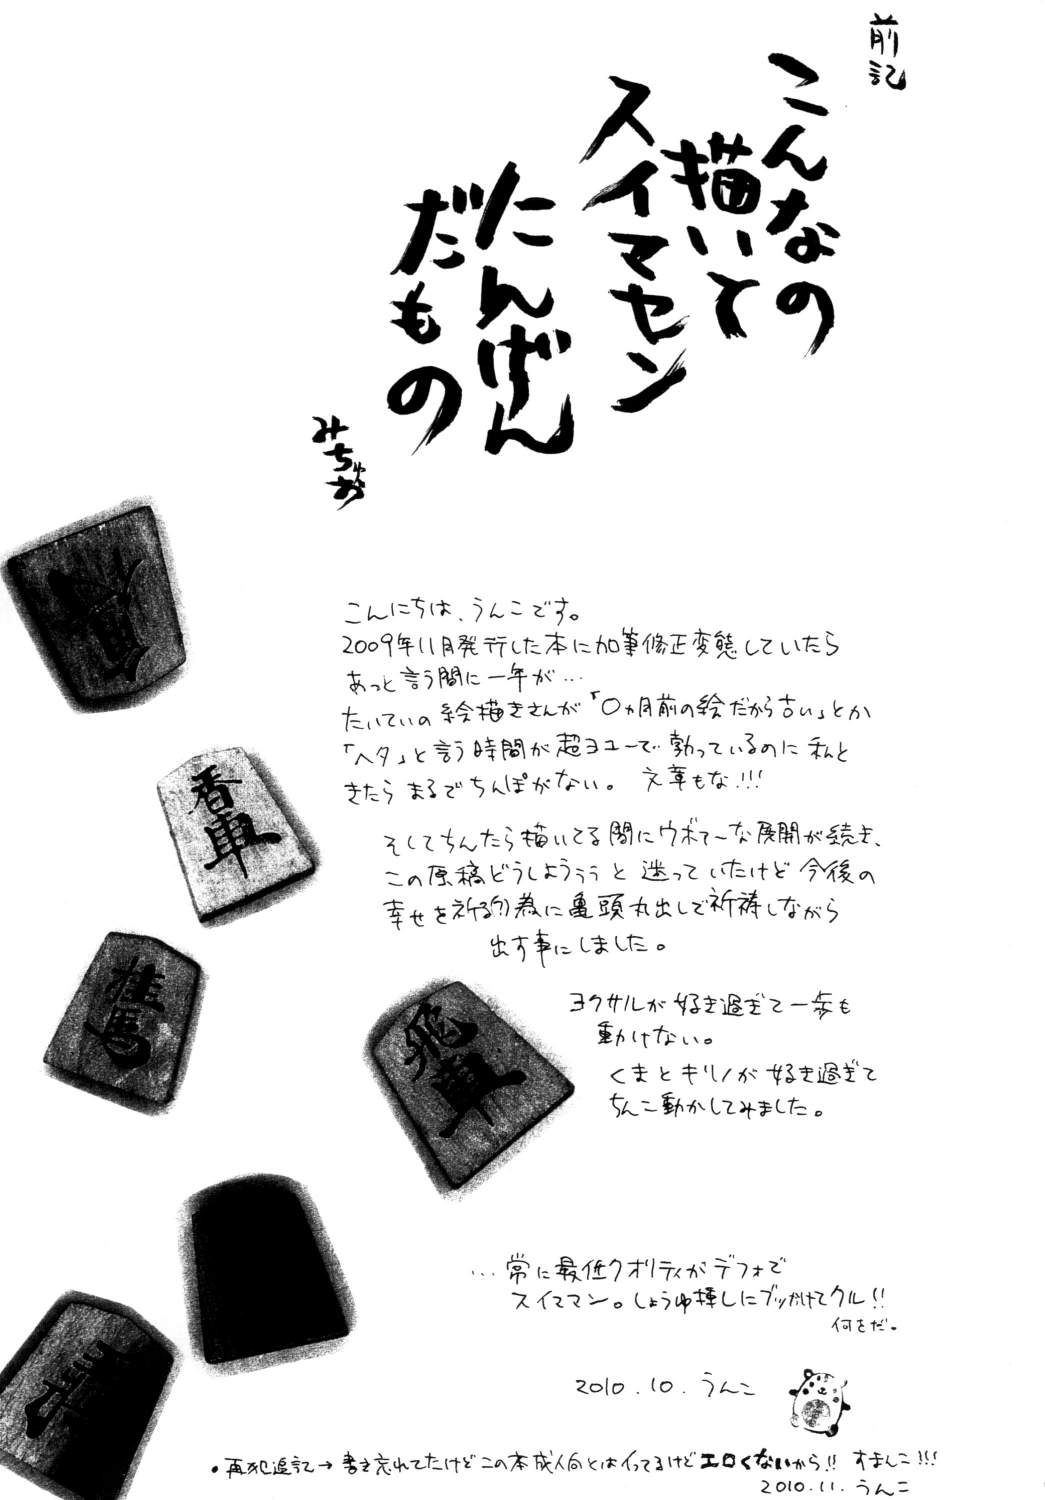 前記
こんなの
描いて
スイマセン
たんげん
だもの
みちゅお
香車
桂馬
飛車
こんにちは、うんこです。
2009年11月発行した本に加筆修正変態していたら
あっと言う間に一年が…
たいていの絵描きさんが「〇ヵ月前の絵だから古い」とか
「ヘタ」と言う時間が超ヨユーで勃っているのに私と
きたらまるでちんぽがない。 文章もな!!!
そしてちんたら描いてる間にウボァーな展開が続き、
この原稿どうしようぅぅと迷っていたけど今後の
幸せを祈る(?)為に亀頭丸出しで祈祷しながら
出す事にしました。
ヨクサルが好き過ぎて一歩も
動けない。
くまとキリノが好き過ぎて
ちんこ動かしてみました。
…常に最低クオリティがデフォで
スイママン。しょうゆ挿しにブッかけてクル!!
何をだ。
2010.10. うんこ
・再犯追記→書き忘れてたけどこの本成人向とはイってるけどエロくないから!! すまんこ!!!
2010.11. うんこ